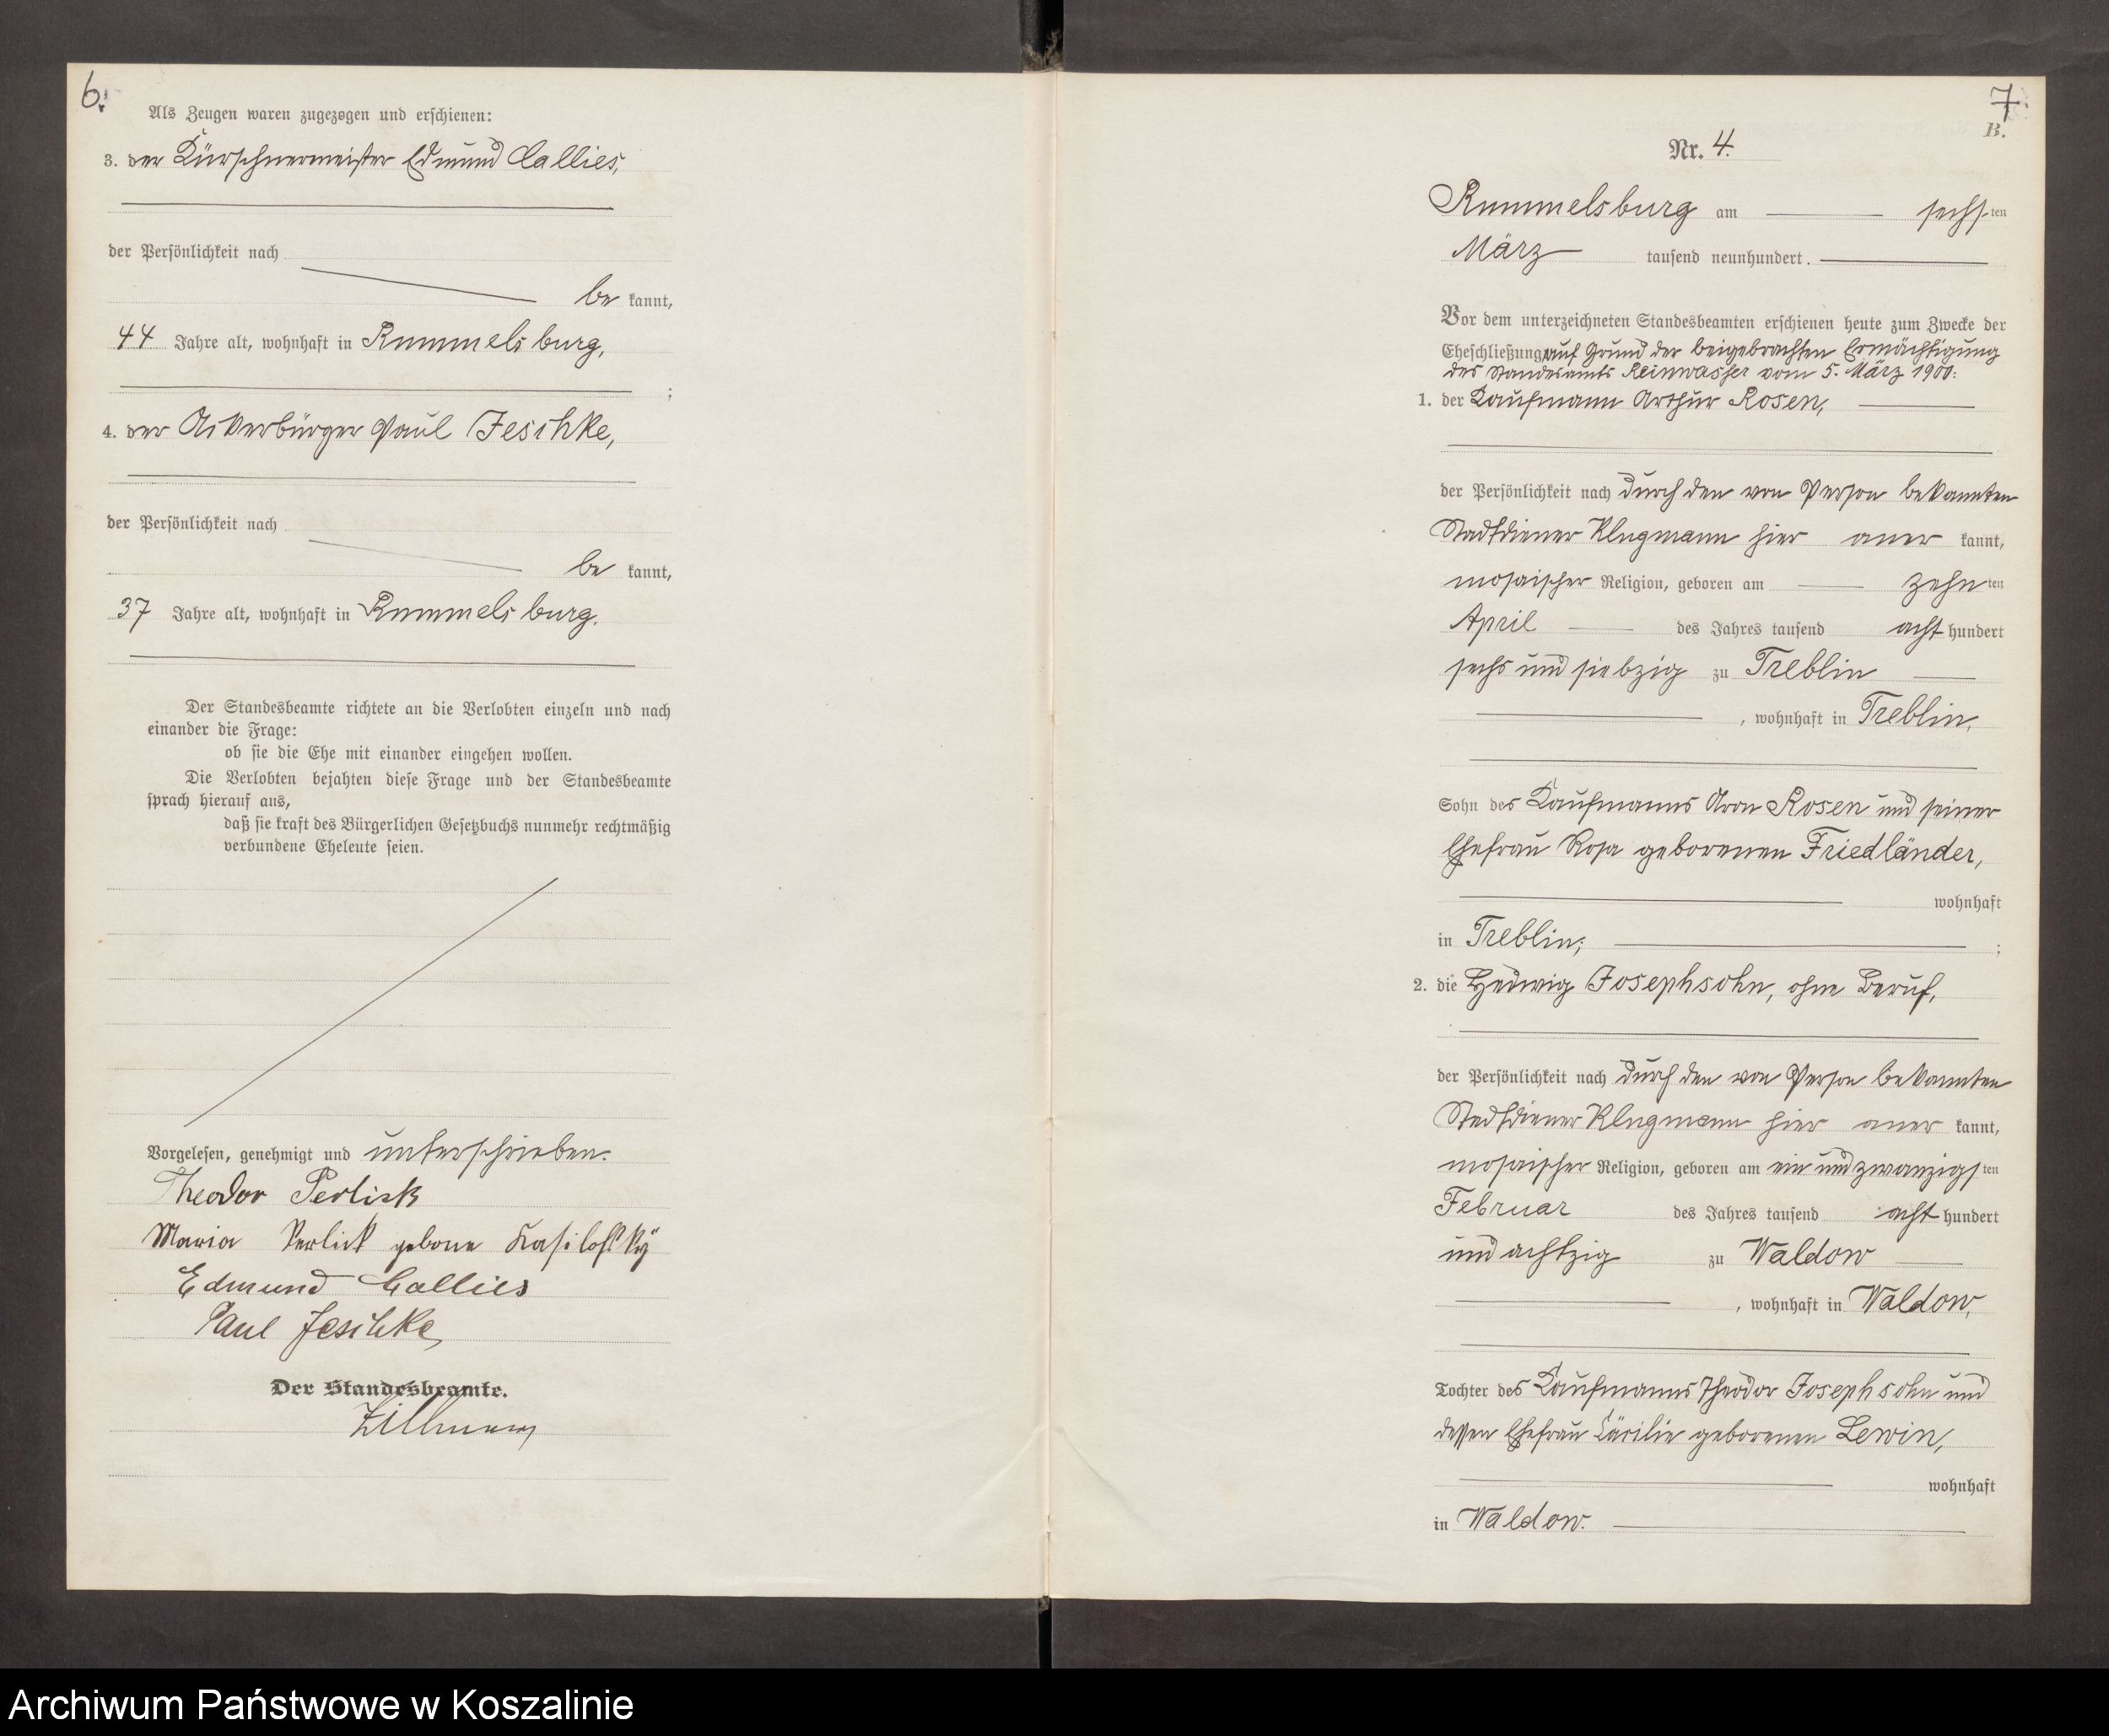 6.
Als Zeugen waren zugezogen und erschienen:
3. der Kürschnermeister Edmund Callies,
der Persönlichkeit nach
be kannt,
44 Jahre alt, wohnhaft in Rummelsburg,
;
4. der Ackerbürger Paul Jeschke,
der Persönlichkeit nach
be kannt,
37 Jahre alt, wohnhaft in Rummelsburg.
Der Standesbeamte richtete an die Verlobten einzeln und nach
einander die Frage:
ob sie die Ehe mit einander eingehen wollen.
Die Verlobten bejahten diese Frage und der Standesbeamte
sprach hierauf aus,
daß sie kraft des Bürgerlichen Gesetzbuchs nunmehr rechtmäßig
verbundene Eheleute seien.
Vorgelesen, genehmigt und unterschrieben.
Theodor Perlick
Maria Perlick geborne
Edmund Callies
Paul Jeschke
Der Standesbeamte.
7.
B.
Nr. 4.
Rummelsburg am sechs ten
März tausend neunhundert.
Vor dem unterzeichneten Standesbeamten erschienen heute zum Zwecke der
Eheschließung auf Grund der beigebrachten Ermächtigung
des Standesamts Reinwasser vom 5. März 1900:
1. der Kaufmann Arthur Rosen,
der Persönlichkeit nach durch den von Person bekannten
Stadtdiener Klugmann hier aner kannt,
mosaischer Religion, geboren am zehn ten
April des Jahres tausend acht hundert
sechs und siebzig zu Treblin
, wohnhaft in Treblin,
Sohn des Kaufmanns Aron Rosen und seiner
Ehefrau Rosa geborenen Friedländer,
wohnhaft
in Treblin; ;
2. die Hedwig Josephsohn, ohne Beruf,
der Persönlichkeit nach durch den von Person bekannten
Stadtdiener Klugmann hier aner kannt,
mosaischer Religion, geboren am ein und zwanzigs ten
Februar des Jahres tausend acht hundert
und achtzig zu Waldow
, wohnhaft in Waldow,
Tochter des Kaufmanns Theodor Josephsohn und
dessen Ehefrau Cäcilie geborenen Lewin,
wohnhaft
in Waldow.
Archiwum Państwowe w Koszalinie